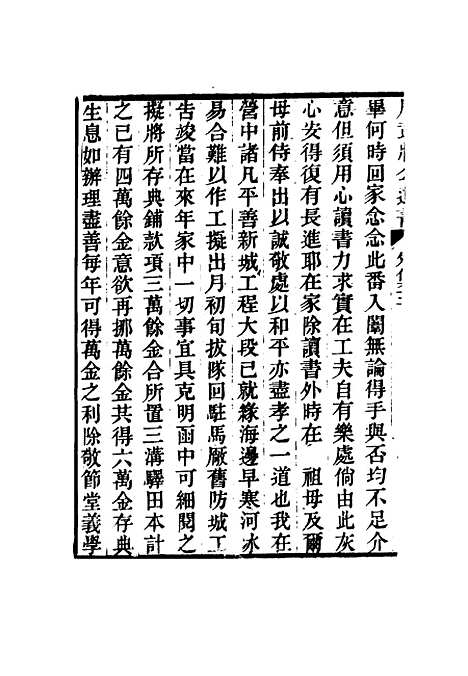 畢何時回家念念此番入闈無論得手與否均不足介
意但須用心讀書力求實在工夫自有樂處倘由此灰
心安得復有長進耶在家除讀書外時在　祖母及爾
母前侍奉出以誠敬處以和平亦盡孝之一道也我在
營中諸凡平善新城工程大段已就緣海邊早寒河冰
易合難以作工擬出月初旬拔隊回駐馬厰舊防城工
告竣當在來年家中一切事宜具克明函中可細閱之
擬將所存典鋪款項三萬餘金合所置三溝驛田本計
之已有四萬餘金意欲再挪萬餘金共得六萬金存典
生息如辦理盡善每年可得萬金之利除敬節堂義學